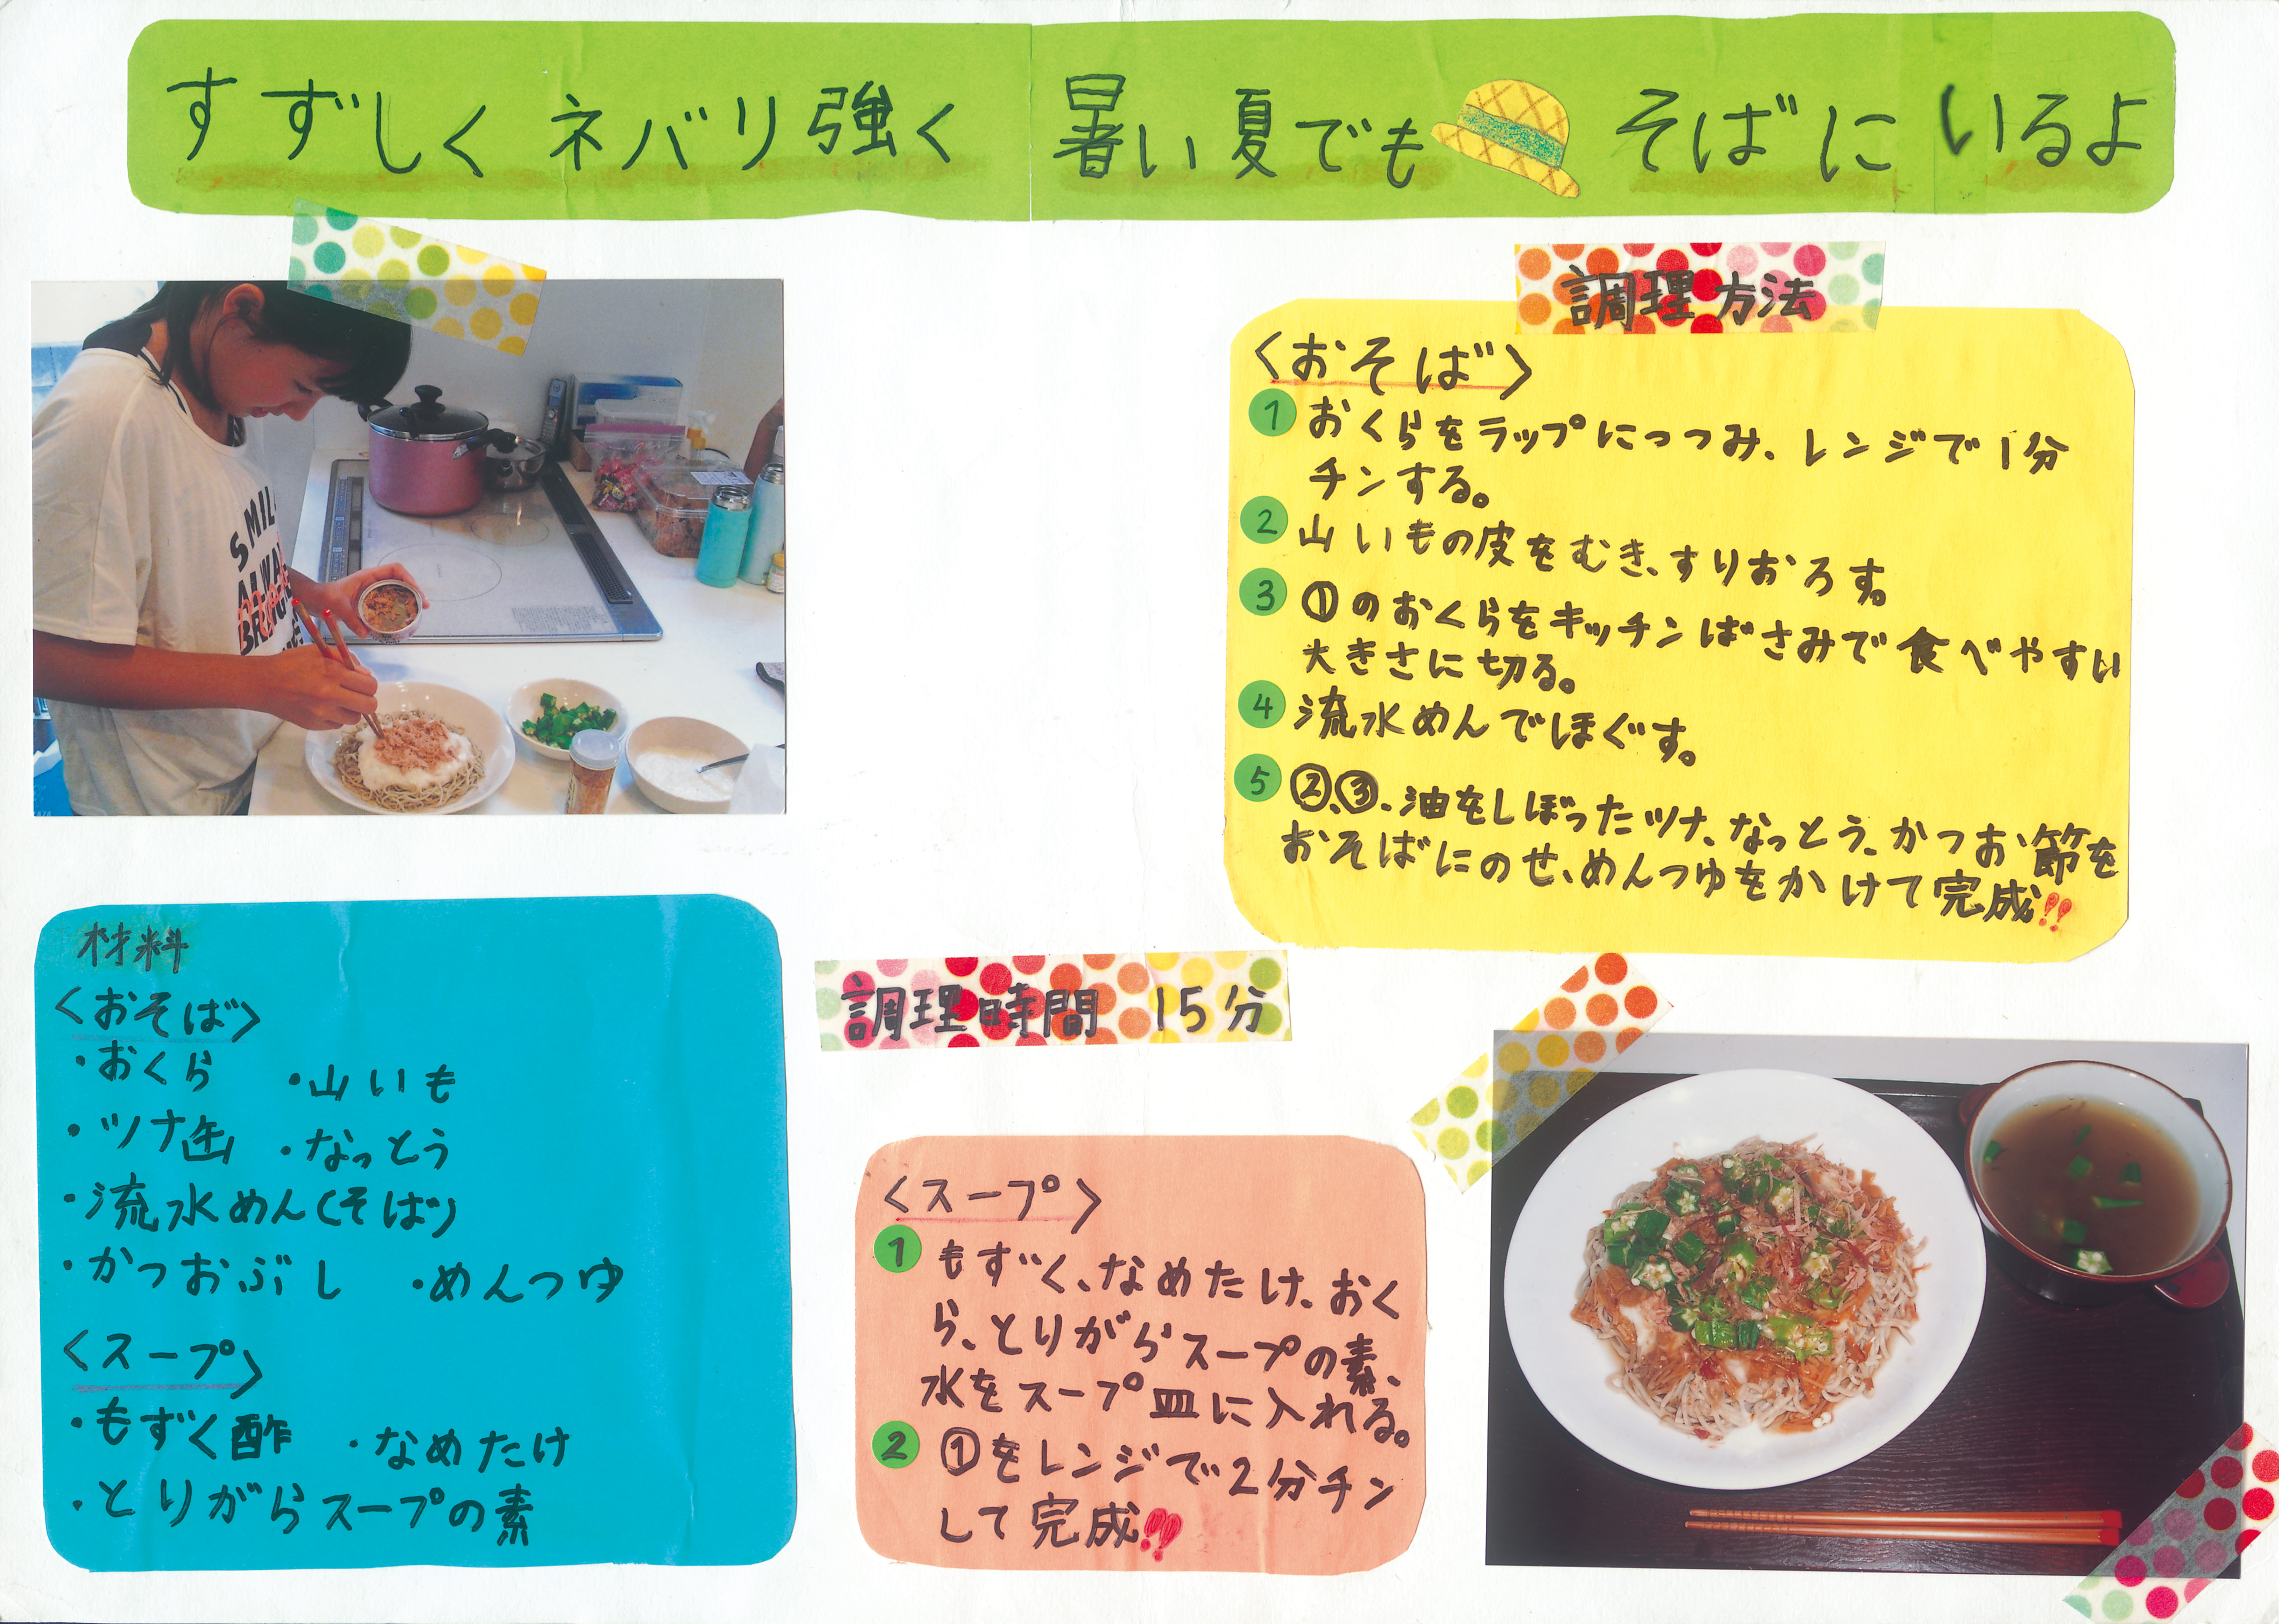 すずしくネバリ強く 暑い夏でも そばにいるよ
調理方法
<おそば>
1 おくらをラップにつつみ、レンジで1分
チンする。
2 山いもの皮をむき、すりおろす。
3 ①のおくらをキッチンばさみで食べやすい
大きさに切る。
4 流水めんでほぐす。
5 ②、③、油をしぼったツナ、なっとう、かつお節を
おそばにのせ、めんつゆをかけて完成!!
材料
<おそば>
・おくら ・山いも
・ツナ缶 ・なっとう
・流水めん(そば)
・かつおぶし ・めんつゆ
<スープ>
・もずく酢 ・なめたけ
・とりがらスープの素
調理時間 15分
<スープ>
1 もずく、なめたけ、おく
ら、とりがらスープの素、
水をスープ皿に入れる。
2 ①をレンジで2分チン
して完成!!
SMIL
ALWA